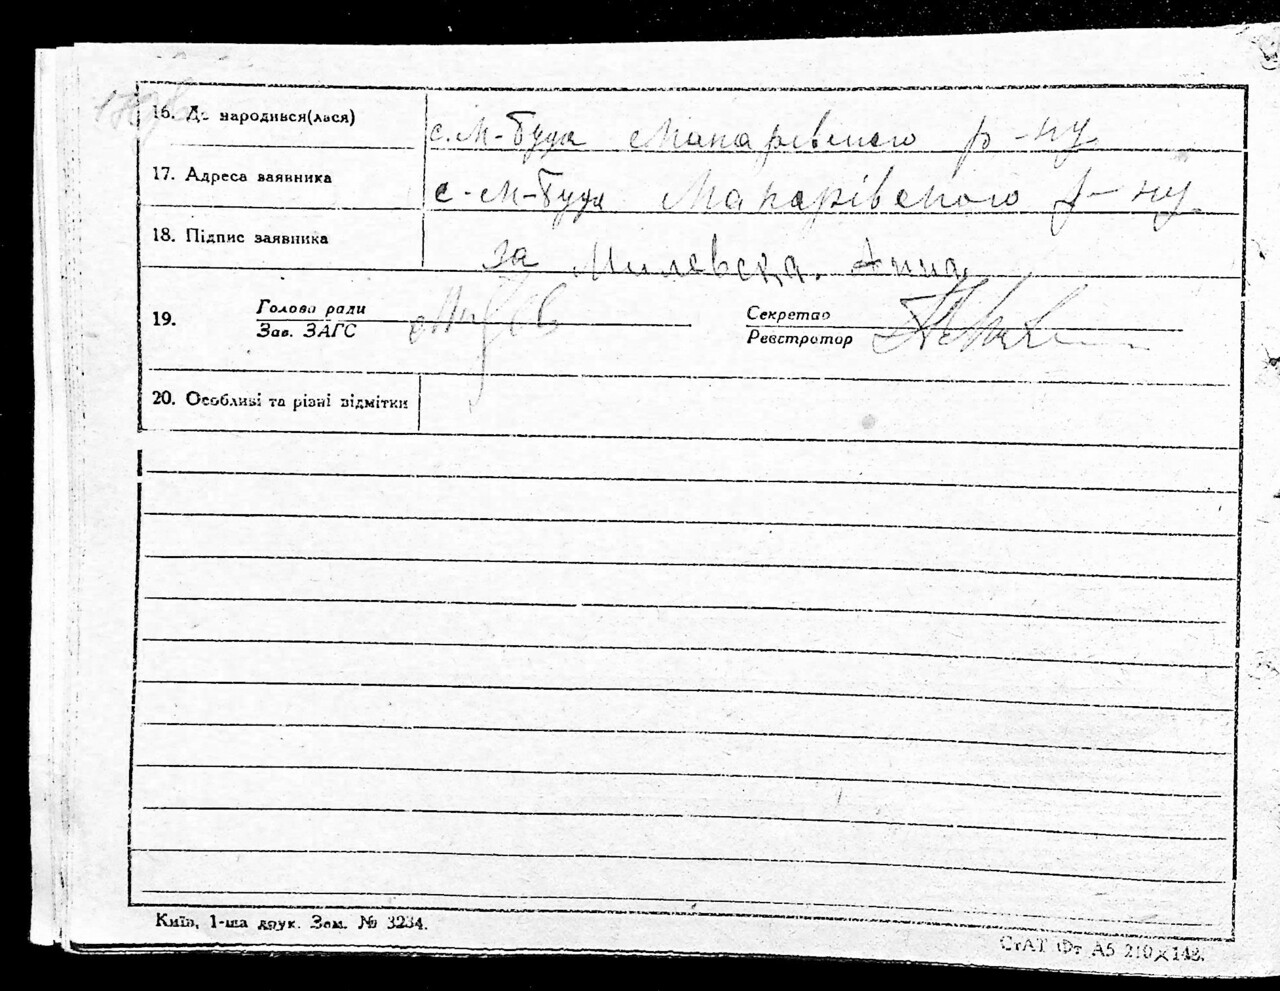 16. Де народився(лася) с. М-Буда Макарівського р-ну.
17. Адреса заявника с-М-Буда Макарівського р-ну
18. Підпис заявника за Милевська. Анна
19. Голова ради Секретар
Зав. ЗАГС Реєстротор
20. Особливі та різні відмітки
Київ, 1-ша друк. Зам. № 3234.
СтАТ Фт А5 210×148.